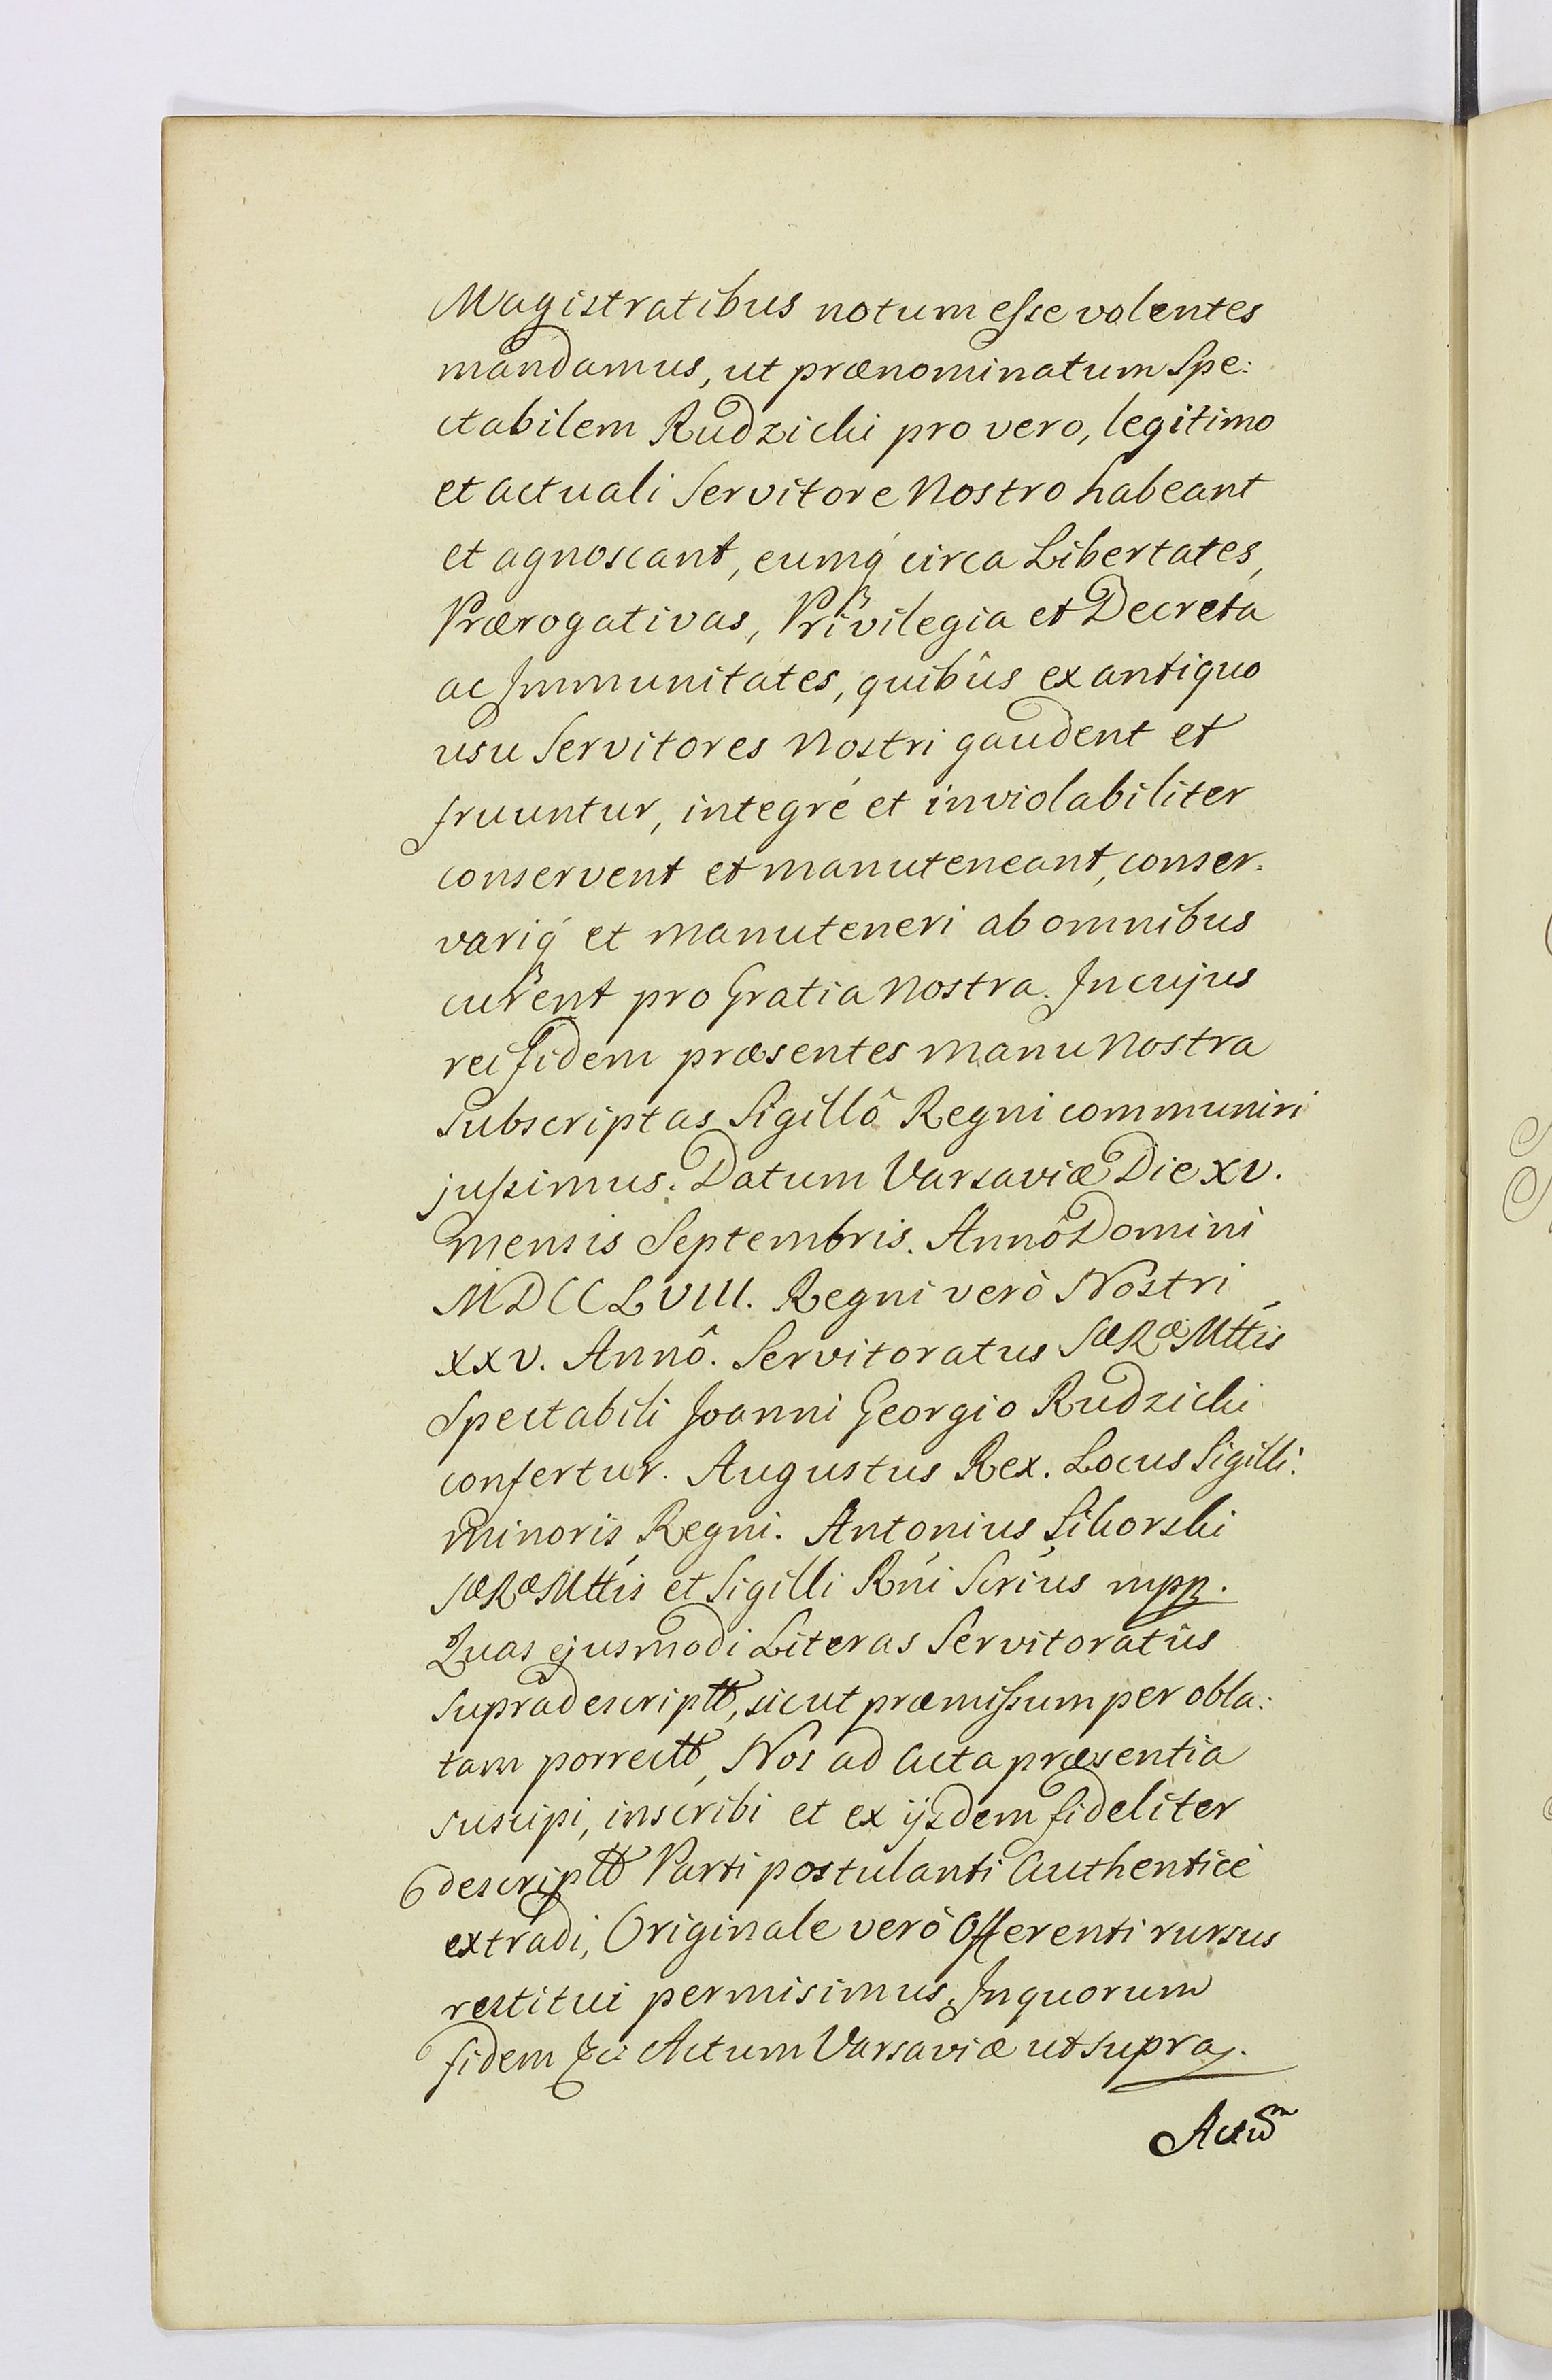 Magistratibus notum esse volentes
mandamus, ut prænominatum Spe:
ctabilem Rudzicki pro vero, legitimo
et actuali Servitore Nostro habeant
et agnoscant, eumq́ circa Libertates,
Prærogativas, Privilegia et Decreta
ac Immunitates, quibûs ex antiquo
usu Servitores Nostri gaudent et
fruuntur, integré et inviolabiliter
conservent et manuteneant, conser:
variq́ et manuteneri ab omnibus
curent pro Gratia Nostra. In cujus
rei fidem præsentes manu Nostra
subscriptas Sigillô Regni communiri
jussimus. Datum Varsaviæ Die XV.
Mensis Septembris. Annô Domini
MDCCLVIII. Regni verò Nostri
XXV. Annô. Servitoratus SæRæMttis
Spectabili Joanni Georgio Rudzicki
confertur. Augustus Rex. Locus Sigilli.
minoris Regni. Antonius Sikorski
SæRæMttis et Sigilli Rńi Scrius mpp.
Quas ejusmodi Literas Servitoratûs
supradescriptt, sicut præmissum per obla:
tam porrectt, Nos ad Acta præsentia
suscipi, inscribi et ex ijsdem fideliter
descriptt Parti postulanti Authenticè
extradi, Originale verò Offerenti rursus
restitui permisimus, In quorum
fidem &c: Actum Varsaviæ ut supra.
Actum